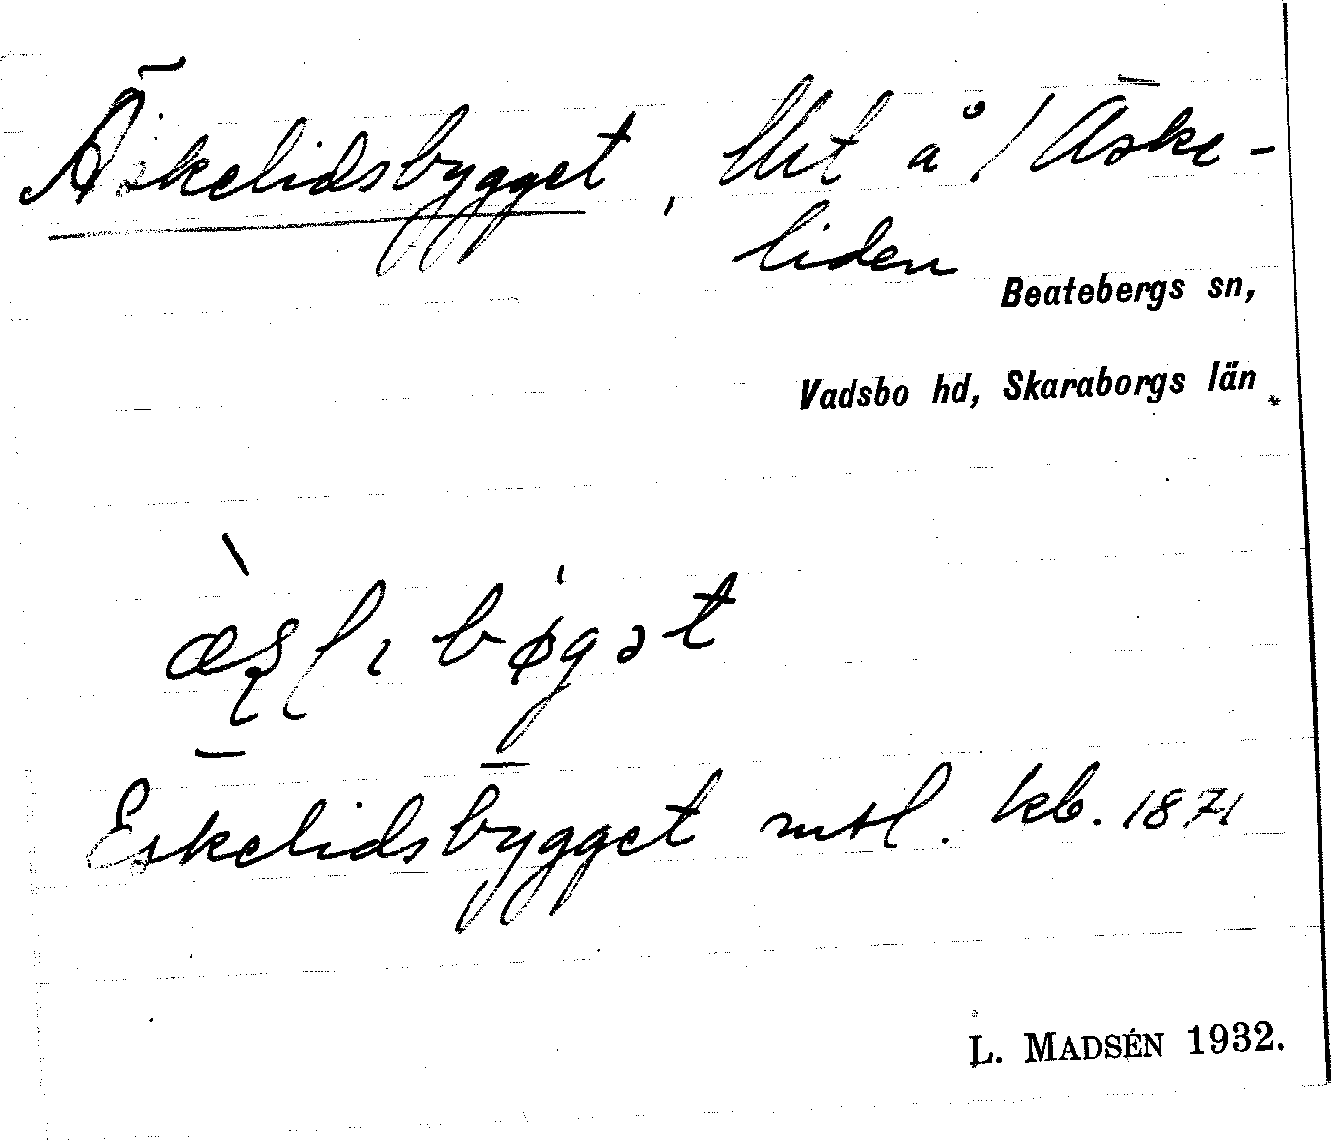 Äskelidsbygget, Utt å 1 Äske-
liden
Beatebergs sn,
Vadsbo hd, Skaraborgs län
Eskelidsbygget mtl. kb. 1871
L. MADSÉN 1932.